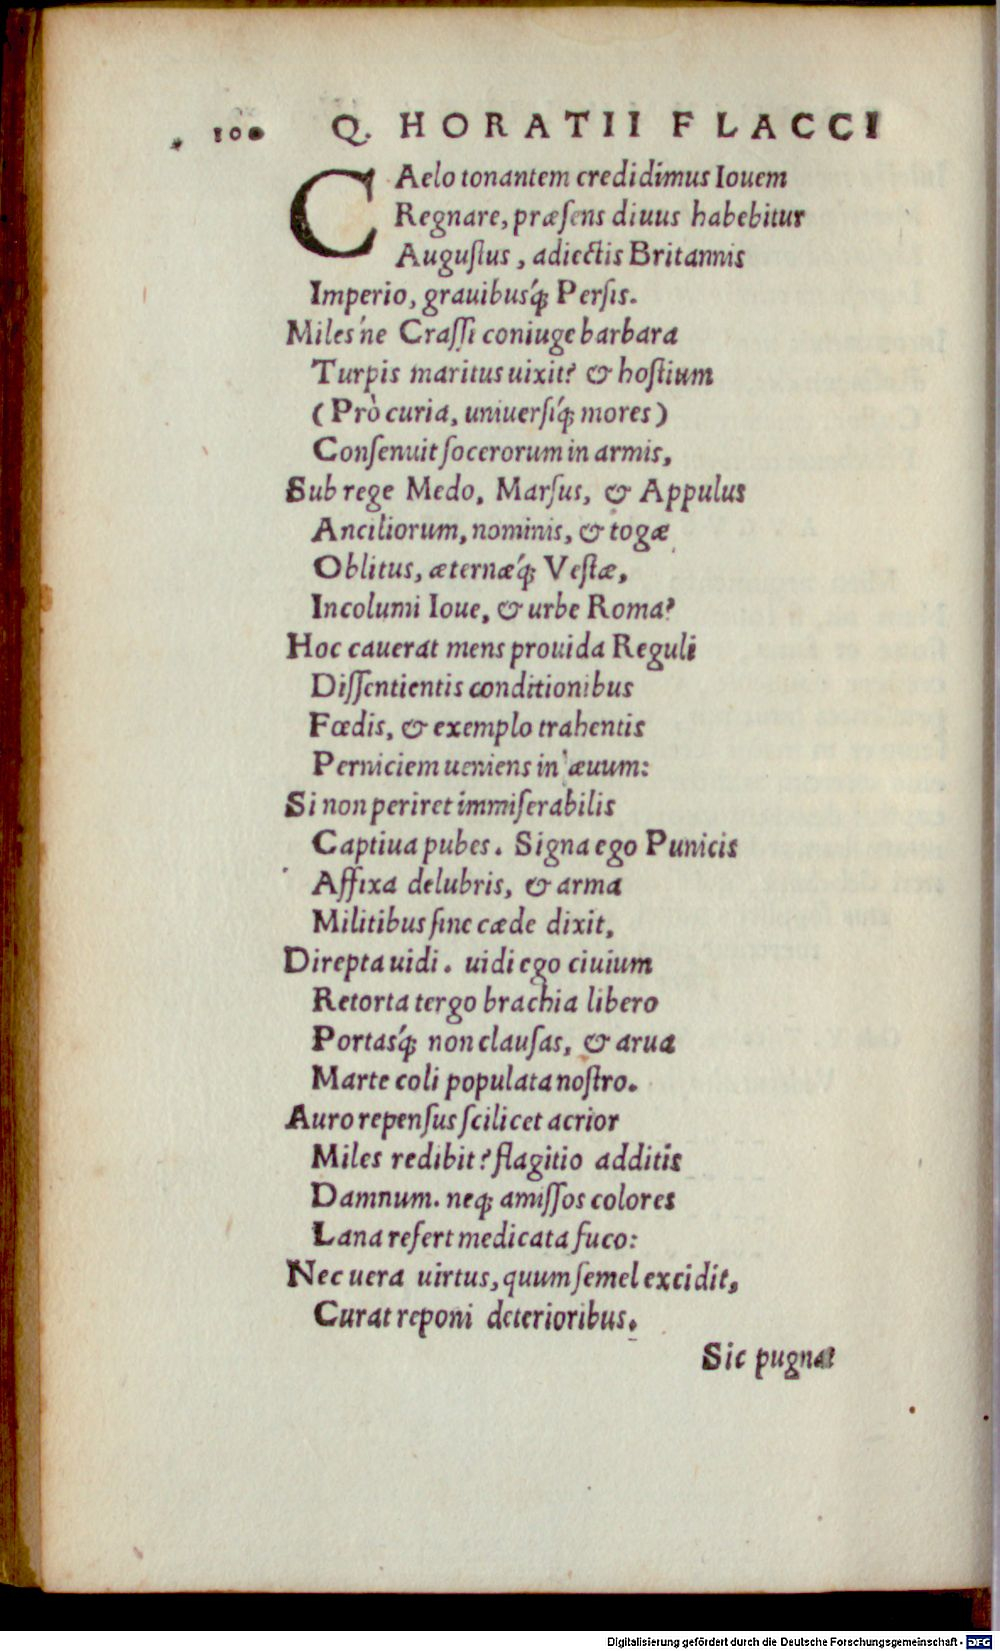 100 Q. HORATII FLACCI
CAelo tonantem credidimus Iouem
Regnare, præsens diuus habebitur
Augustus, adiectis Britannis
Imperio, grauibusq́; Persis.
Miles'ne Crassi coniuge barbara
Turpis maritus uixit? & hostium
(Prò curia, uniuersiq́; mores)
Consenuit socerorum in armis,
Sub rege Medo, Marsus, & Appulus
Anciliorum, nominis, & togæ
Oblitus, æternæq́; Vestæ,
Incolumi Ioue, & urbe Roma?
Hoc cauerat mens prouida Reguli
Dissentientis conditionibus
Fœdis, & exemplo trahentis
Perniciem ueniens in æuum:
Si non periret immiserabilis
Captiua pubes. Signa ego Punicis
Affixa delubris, & arma
Militibus sine cæde dixit,
Direpta uidi. uidi ego ciuium
Retorta tergo brachia libero
Portasq́; non clausas, & arua
Marte coli populata nostro.
Auro repensus scilicet acrior
Miles redibit? flagitio additis
Damnum. neq; amissos colores
Lana refert medicata fuco:
Nec uera uirtus, quum semel excidit,
Curat reponi deterioribus.
Sic pugnat
Digitalisierung gefördert durch die Deutsche Forschungsgemeinschaft - DFG